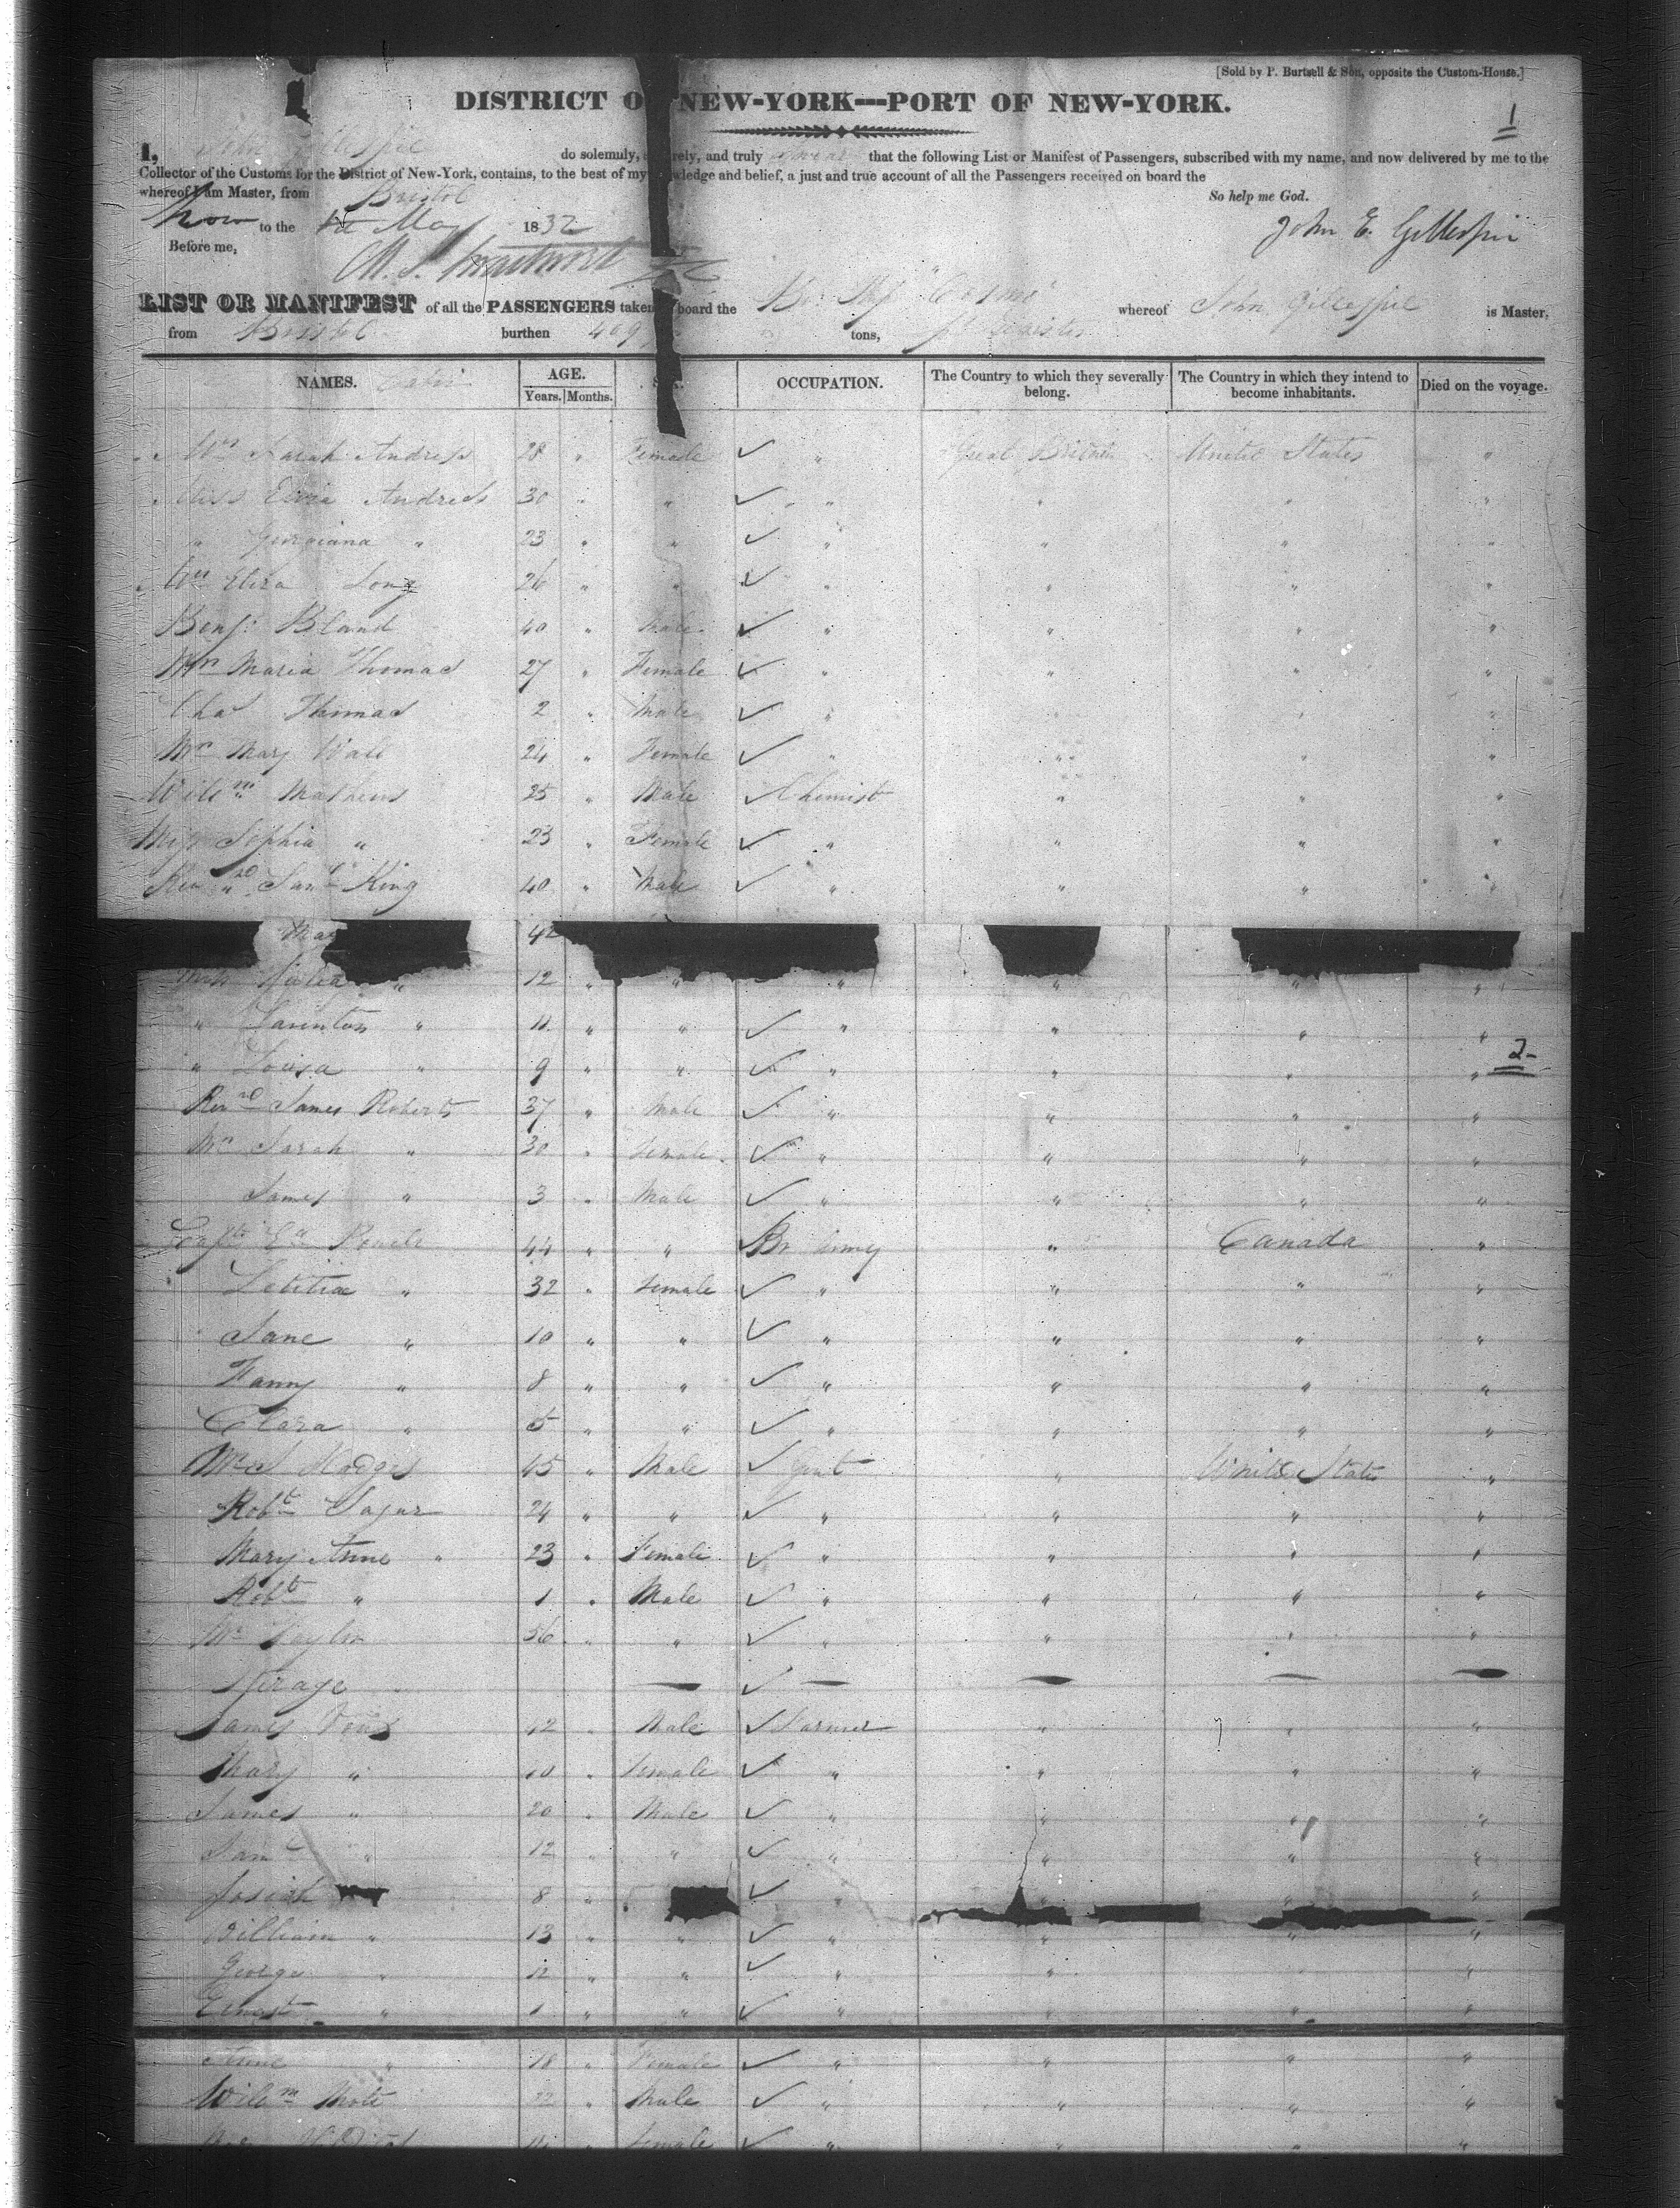 [Sold by P. Burtsell & Son, opposite the Custom-House.]
DISTRICT O NEW-YORK—PORT OF NEW-YORK.
1
I, John Gillespie do solemnly, rely, and truly swear that the following List or Manifest of Passengers, subscribed with my name, and now delivered by me to the
Collector of the Customs for the District of New-York, contains, to the best of my wledge and belief, a just and true account of all the Passengers received on board the
whereof I am Master, from Bristol So help me God.
now to the May 1832 John E. Gillespie
Before me,
LIST OR MANIFEST of all the PASSENGERS taken board the Br. Ship "Cosmo" whereof John Gillespie is Master,
from Bristol burthen 409 tons,
NAMES. Cabin AGE. OCCUPATION. The Country to which they severally belong. The Country in which they intend to become inhabitants. Died on the voyage.
Years. Months.
Mrs Sarah Andress 28 " Female " Great Britain United States "
Miss Andress 30 " " " " " "
" Georgiana " 23 " " " " " "
Mrs Eliza Long 26 " " " " " "
Benj: Bland 40 " Male " " " "
Mrs Maria Thomas 27 " Female " " " "
Chas Thomas 2 " Male " " " "
Mrs Mary Wall 24 " Female " " " "
Willm Mathews 25 " Male Chemist " " "
Miss Sophia " 23 " Female " " " "
Revnd Saml King 40 " Male " " " "
Mary 42
Miss " 12 " " " " " "
" " 11 " " " " " "
" Louisa " 9 " " " " " "
2
Revnd James Roberts 37 " Male " " " "
Mrs Sarah " 30 " Female " " " "
James " 3 " Male " " " "
Capt 44 " " Br Army " Canada "
Letitia " 32 " Female " " " "
Jane " 10 " " " " " "
Fanny " 8 " " " " " "
Clara " 5 " " " " " "
Hodges 45 " Male Gent " United States "
Robt Sagur 24 " " " " " "
Mary Anne " 23 " Female " " " "
Robt " 1 " Male " " " "
Mr Taylor 56 " " " " " "
Sterage " — — — — —
James 42 " Male Farmer " " "
Mary " 40 " Female " " " "
James " 20 " Male " " " "
Saml " 12 " " " " " "
Josiah 8 " " " " "
William " 13 " " " " " "
George " 12 " " " " " "
Ernest " 1 " " " " " "
Anne " 18 " Female " " " "
Willm Mote 22 " Male " " " "
" Female " " " "